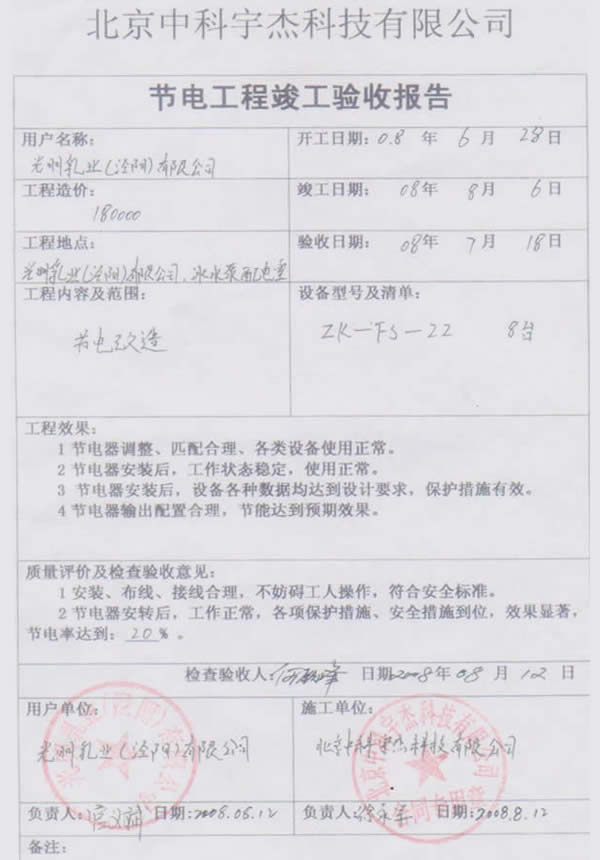 北京中科宇杰科技有限公司
节电工程竣工验收报告
用户名称：
光明乳业(泾阳)有限公司
开工日期：0.8 年 6 月 28日
工程造价：
180000
竣工日期： 08年 8 月 6 日
工程地点：
光明乳业(泾阳)有限公司、冰水泵配电室
验收日期： 08年 7 月 18日
工程内容及范围：
节电改造
设备型号及清单：
ZK—FS—22 8台
工程效果：
1 节电器调整、匹配合理、各类设备使用正常。
2 节电器安装后，工作状态稳定，使用正常。
3 节电器安装后，设备各种数据均达到设计要求，保护措施有效。
4 节电器输出配置合理，节能达到预期效果。
质量评价及检查验收意见：
1 安装、布线、接线合理，不妨碍工人操作，符合安全标准。
2 节电器安转后，工作正常，各项保护措施、安全措施到位，效果显著，
节电率达到：20％。
检查验收人： 日期2008年 08 月 12 日
用户单位：
光明乳业(泾阳)有限公司
施工单位：
北京中科宇杰科技有限公司
负责人： 日期：2008.05.12
负责人： 日期：2008.8.12
备注：